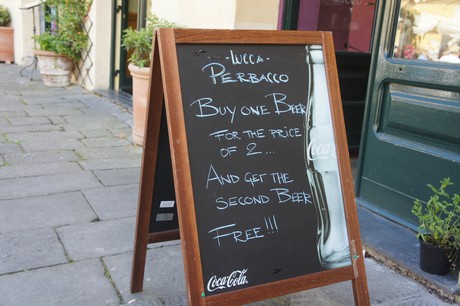 -LUCCA-
PERBACCO
BUY ONE BEER
FOR THE PRICE
OF 2...
AND GET THE
SECOND BEER
FREE!!!
Coca-Cola
Coca-Cola